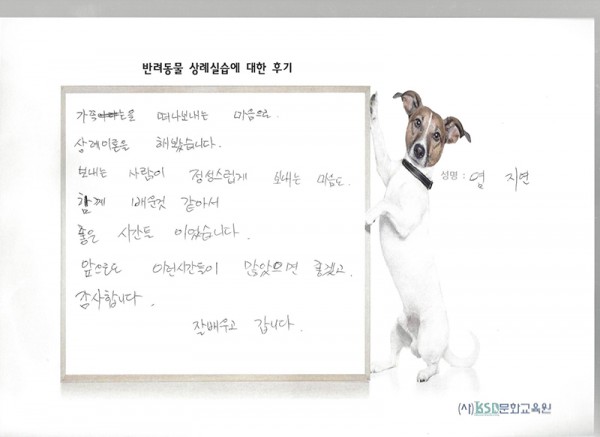 반려동물 상례실습에 대한 후기
가족을 떠나보내는 마음으로.
상례이론을 해봤습니다.
보내는 사람이 정성스럽게 보내는 마음도.
함께 배운것 같아서
좋은 시간들 이었습니다.
앞으로도 이런시간들이 많았으면 좋겠고.
감사합니다.
잘배우고 갑니다.
성명 : 염 지연
(사)KSD문화교육원